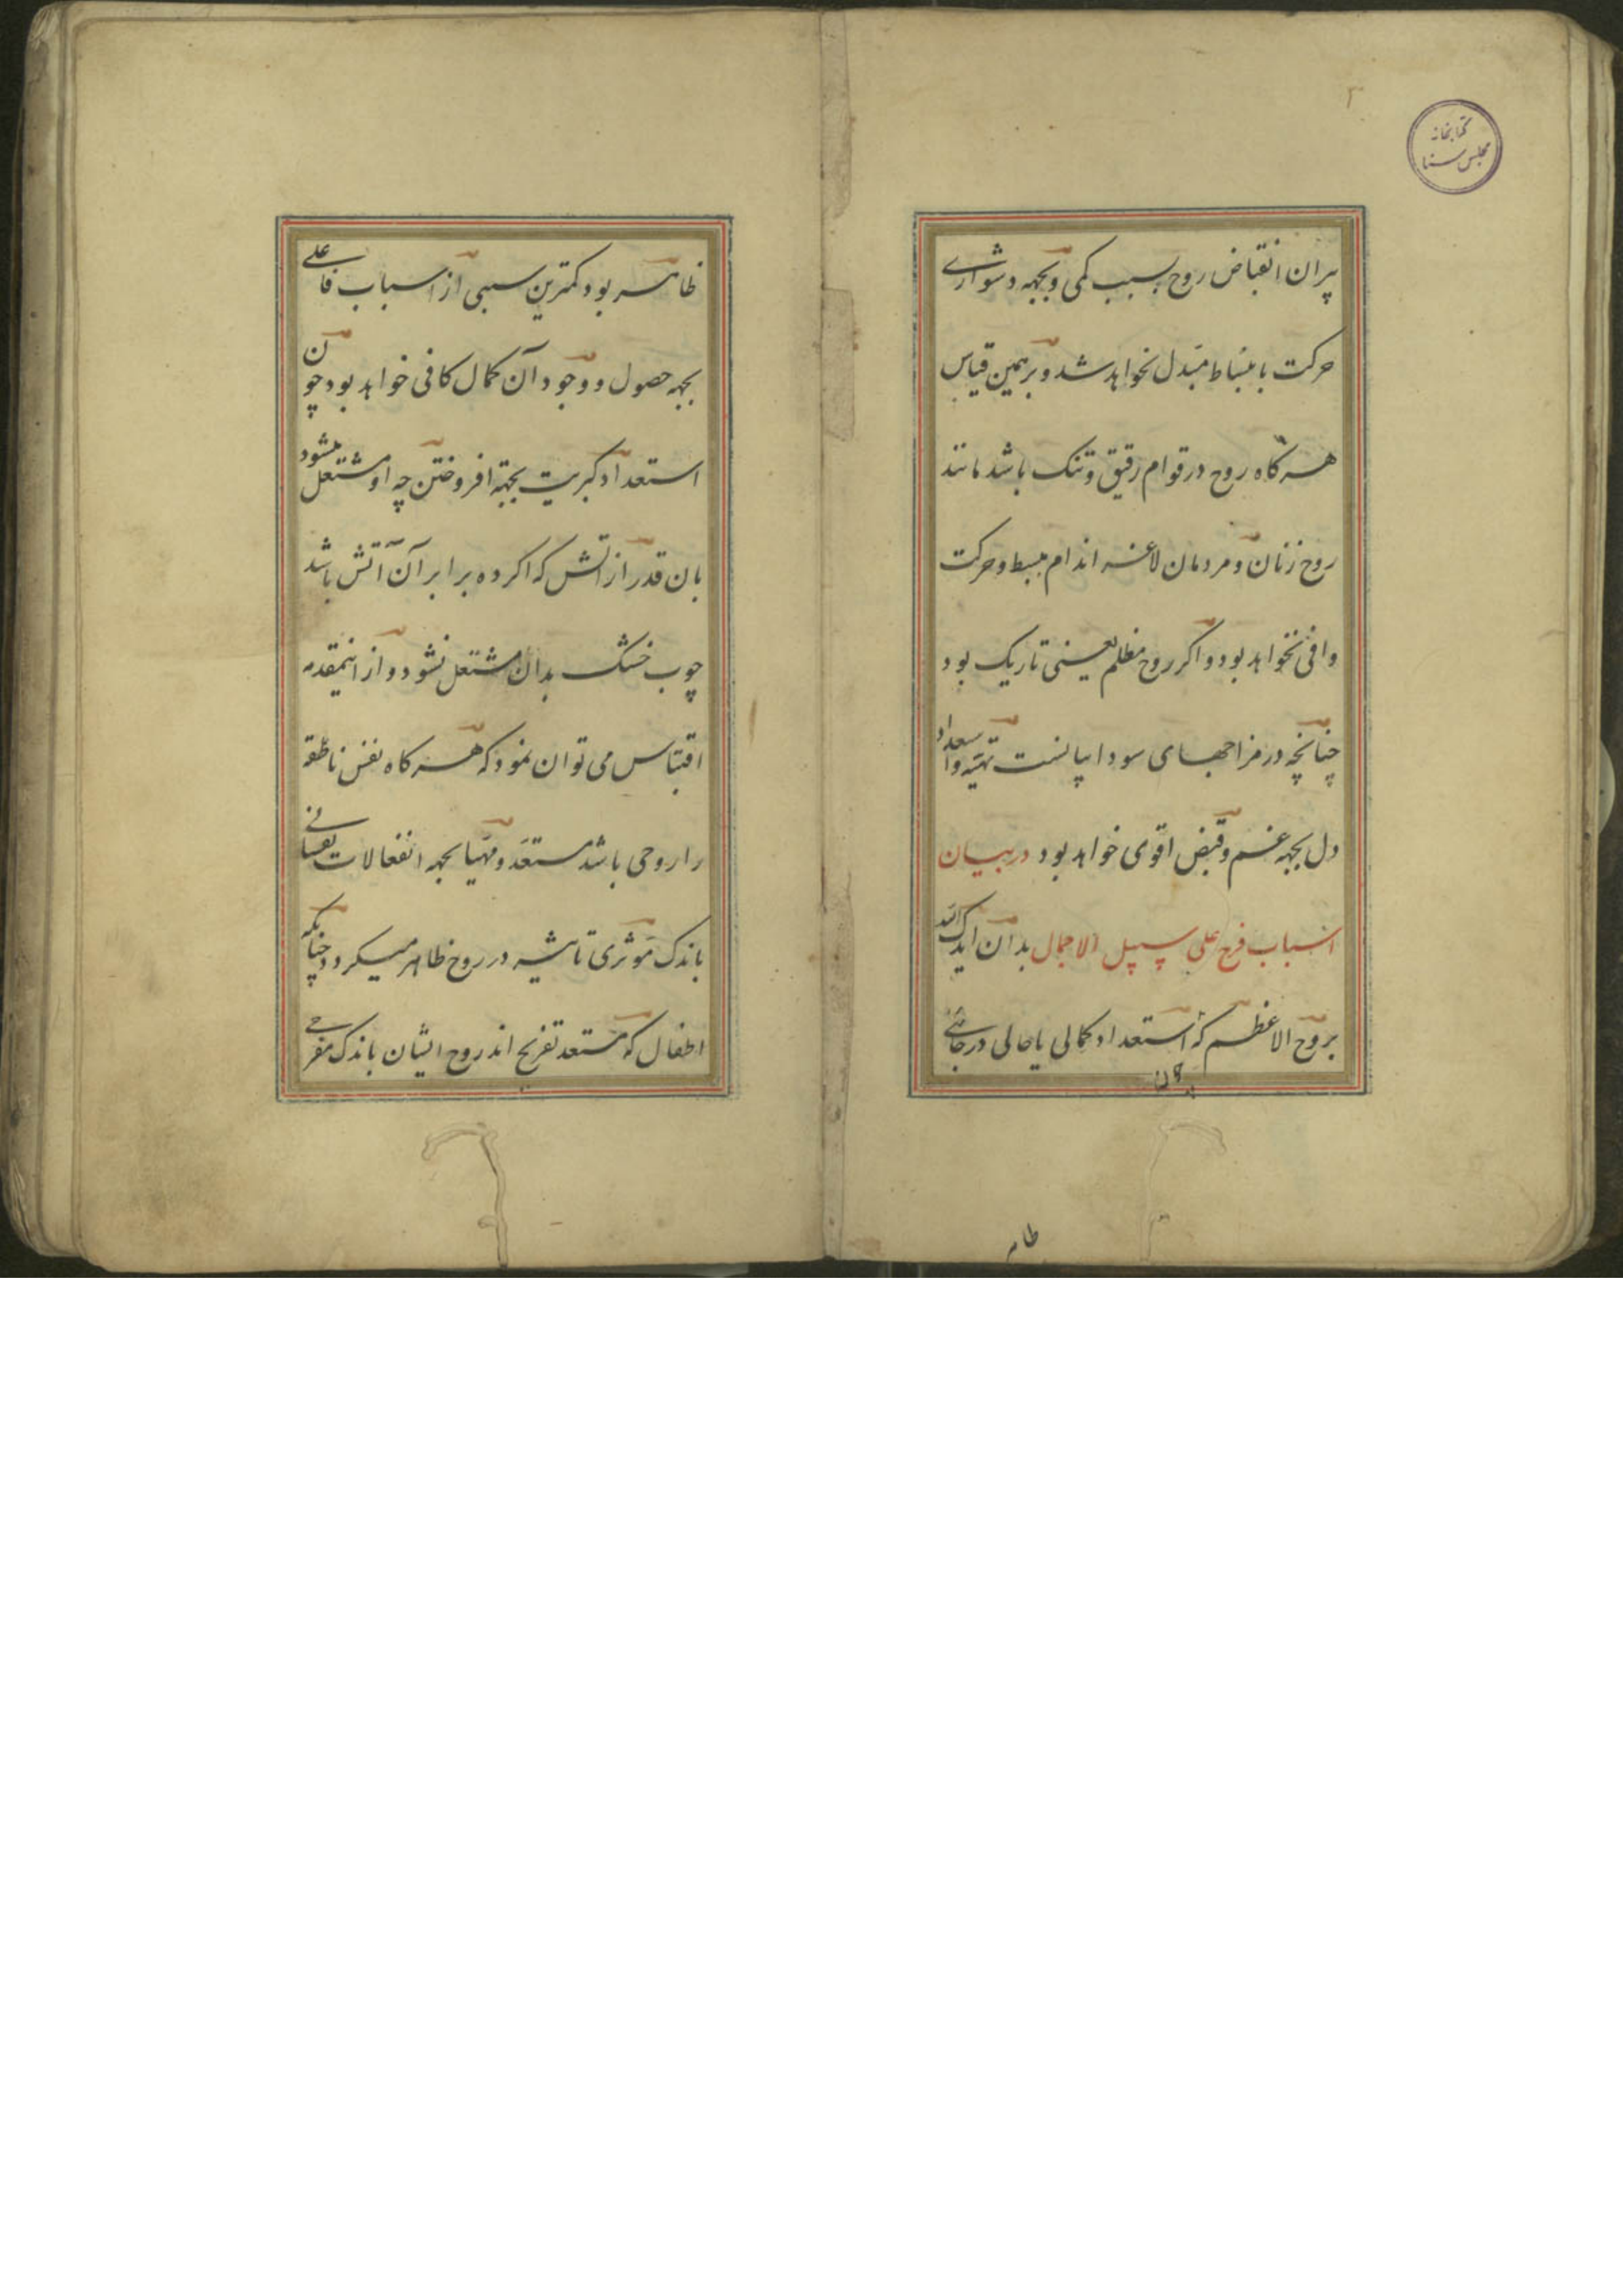 ۲
کتابخانه
مجلس سنا
پیران انقباض روح بسبب کمی و بجهه دشواری
حرکت بانبساط مبدل نخواهد شد و بر همین قیاس
هر کاه روح در قوام رقیق و تنک باشد مانند
روح زنان و مردمان لاغر اندام مبسط و حرکت
وافی نخواهد بود و اکر روح مظلم یعنی تاریک بود
چنانچه در مزاجهای سوداییانست تهیه و استعداد
دل بجهه غم و قبض اقوی خواهد بود در بیان
اسباب فرح علی سبیل الاجمال بدان ایدک الله
بروح الاعظم که استعداد کمالی یا حالی در جائی
ظاهر بود کمترین سببی از اسباب فاعلی
بجهه حصول و وجود آن کمال کافی خواهد بود چون
استعداد کبریت بجهة افروختن چه او مشتعل میشود
بان قدر از اتش که اکر ده برابر آن آتش باشد
چوب خشک بدان مشتعل نشود و از اینمقدمه
اقتباس می توان نمود که هر کاه نفس ناطقه
را روحی باشد مستعد و مهیا بجهه انفعالات نفسانی
باندک موثری تاثیر در روح ظاهر میکردد چنانکه
اطفال که مستعد تفریح اند روح ایشان باندک مفرحی